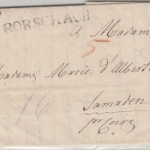 RORSCHACH
à Madame
5
Madame Marie d'Albert
Samaden
pr Coire